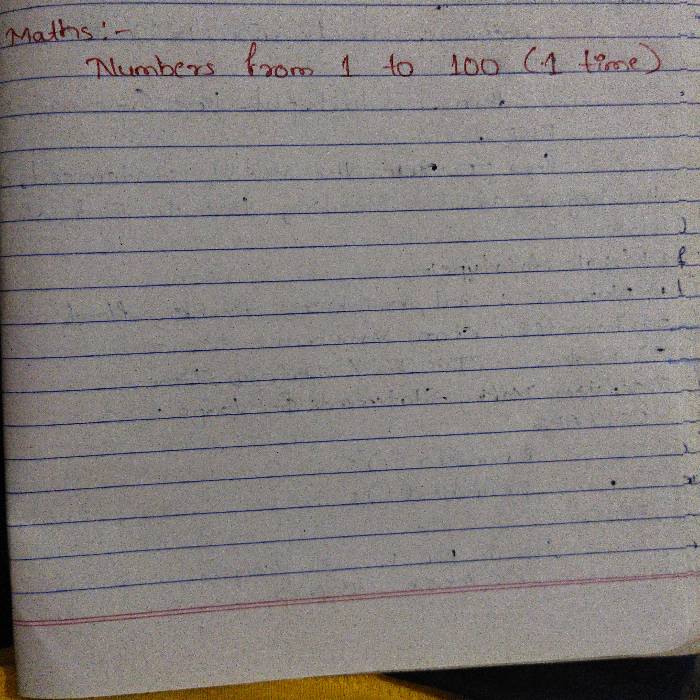 Maths:-
Numbers from 1 to 100 (1 time)